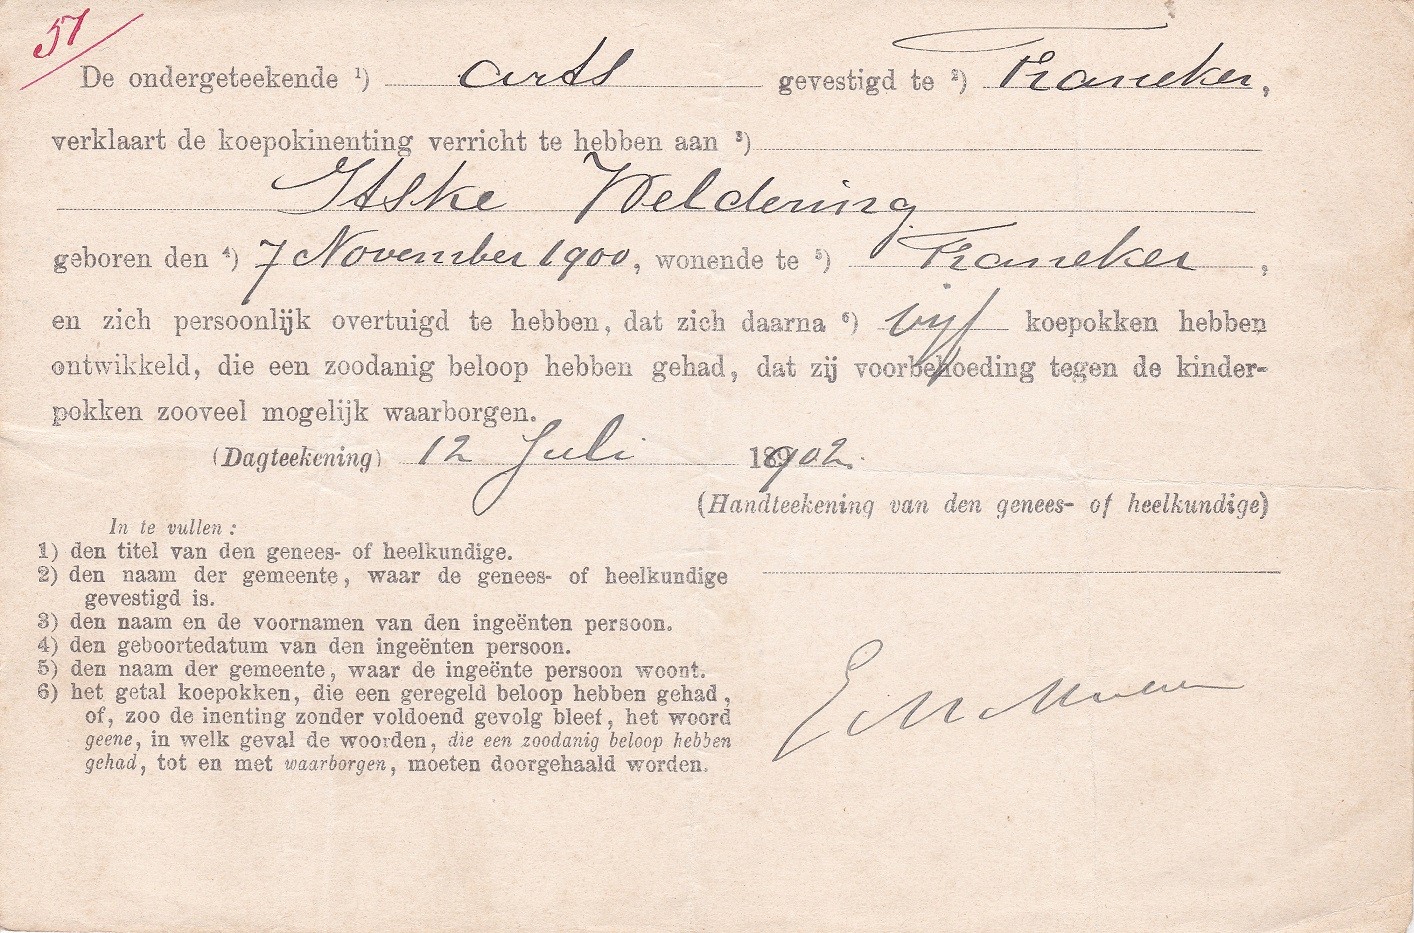 57
De ondergeteekende ¹) arts gevestigd te ²) Franeker,
verklaart de koepokinenting verricht te hebben aan ³)
Itske Weldering
geboren den ⁴) 7 November 1900, wonende te ⁵) Franeker,
en zich persoonlijk overtuigd te hebben, dat zich daarna ⁶) vijf koepokken hebben
ontwikkeld, die een zoodanig beloop hebben gehad, dat zij voorbehoeding tegen de kinder-
pokken zooveel mogelijk waarborgen.
(Dagteekening) 12 Juli 1902.
(Handteekening van den genees- of heelkundige)
In te vullen:
1) den titel van den genees- of heelkundige.
2) den naam der gemeente, waar de genees- of heelkundige
gevestigd is.
3) den naam en de voornamen van den ingeënten persoon.
4) den geboortedatum van den ingeënten persoon.
5) den naam der gemeente, waar de ingeënte persoon woont.
6) het getal koepokken, die een geregeld beloop hebben gehad,
of, zoo de inenting zonder voldoend gevolg bleef, het woord
geene, in welk geval de woorden, die een zoodanig beloop hebben
gehad, tot en met waarborgen, moeten doorgehaald worden.